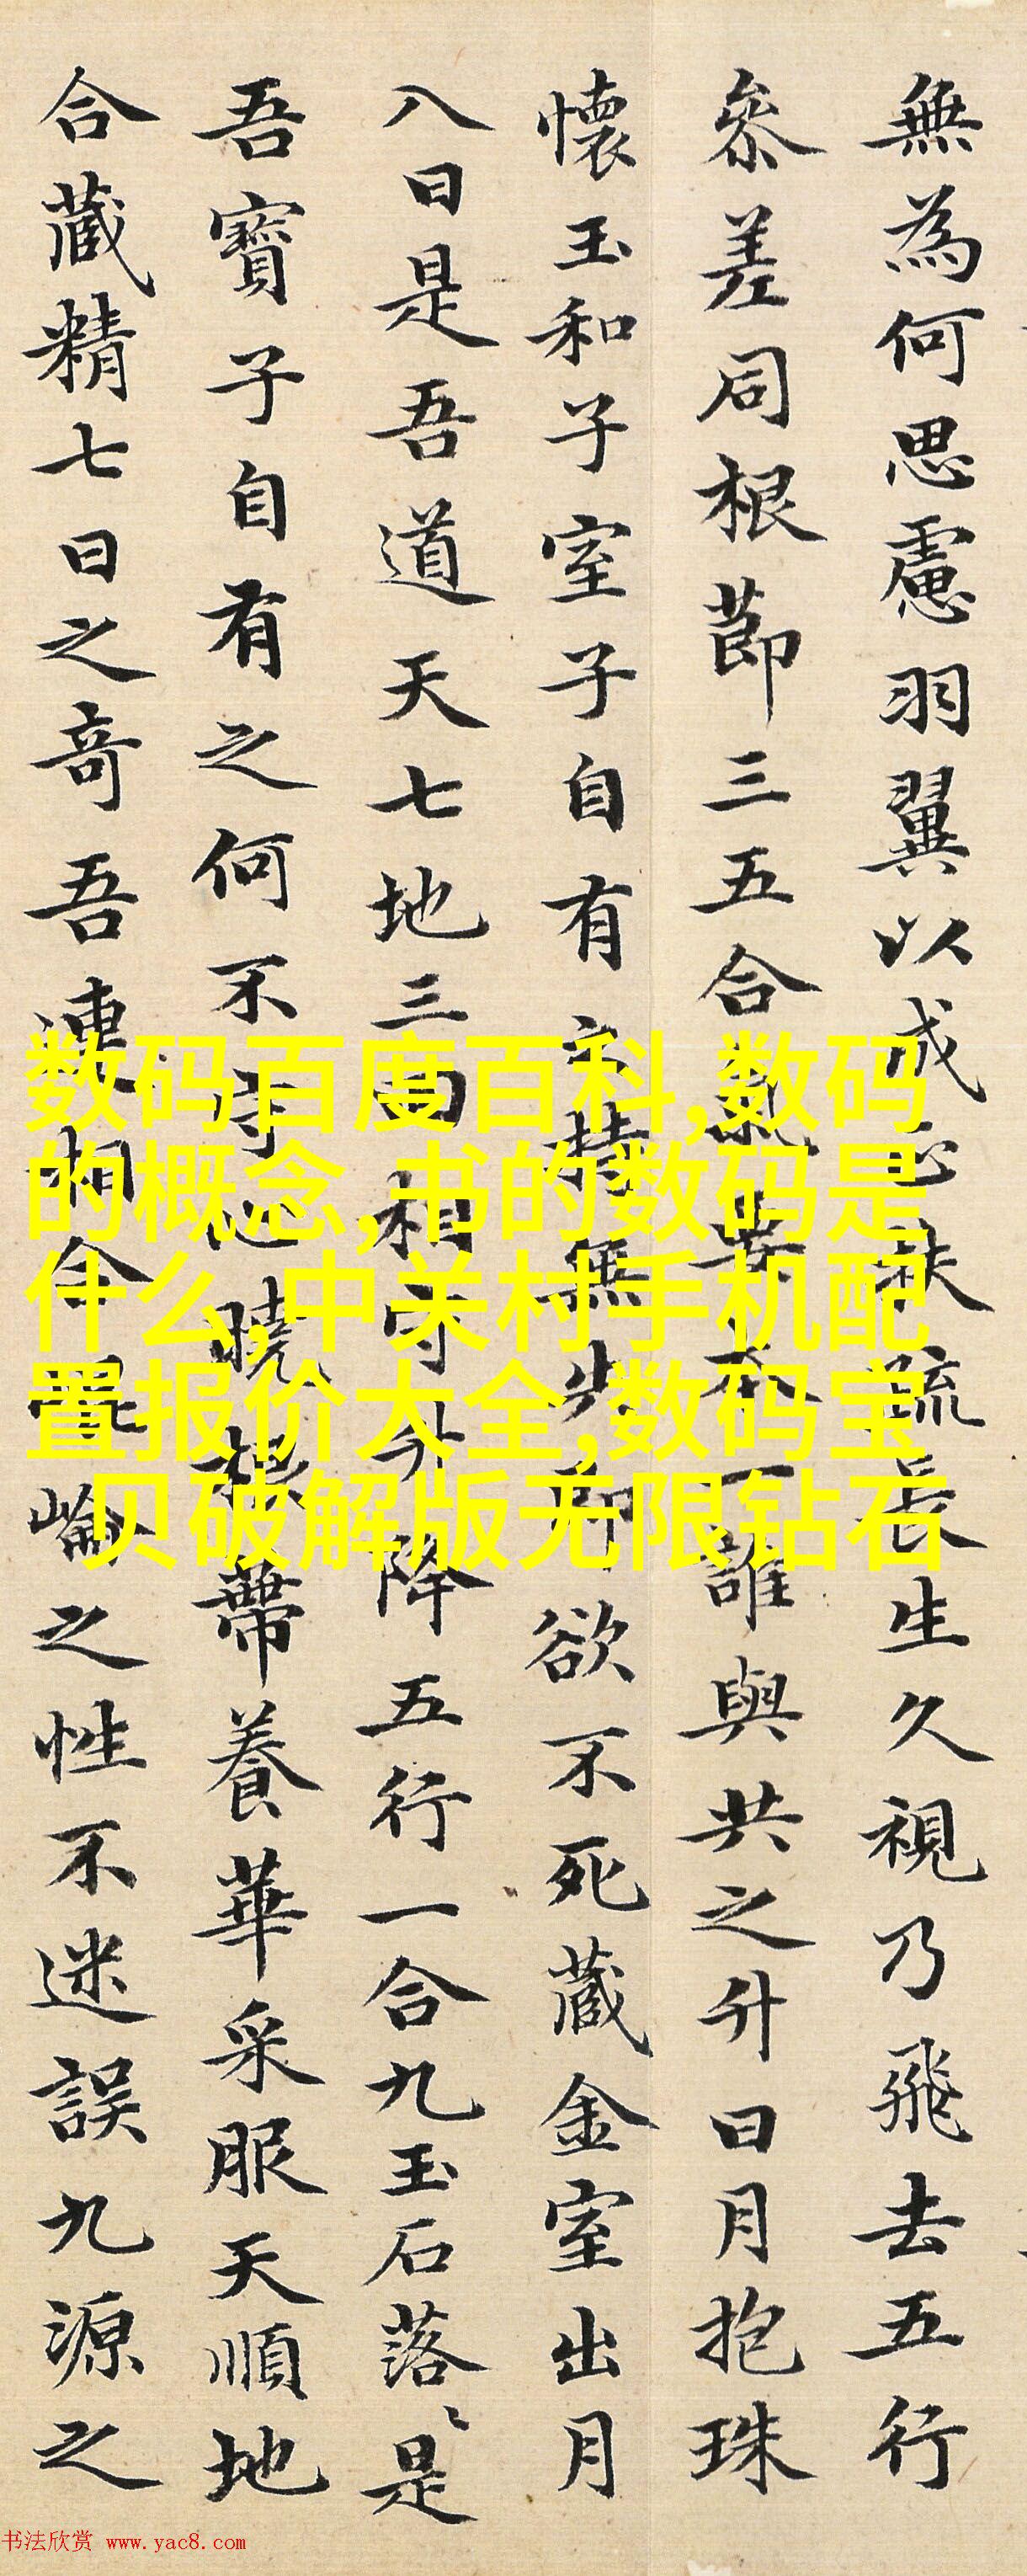 無為何思慮羽翼以成正扶疏長生久視乃飛去五行
參差同根莭三五合氣要本一誰與共之升日月抱珠
懷玉和子室子自有之持無失即欲不死藏金室出月
入日是吾道天七地三回相守升降五行一合九玉石落〻是
吾寶子自有之何不守心曉根蔕養華采服天順地
合藏精七日之奇吾連相合崐崘之性不迷誤九源之
数码百度百科,数码
的概念,书的数码是
什么,中关村手机配
置报价大全,数码宝
贝破解版无限钻石
书法欣赏 www.yac8.com